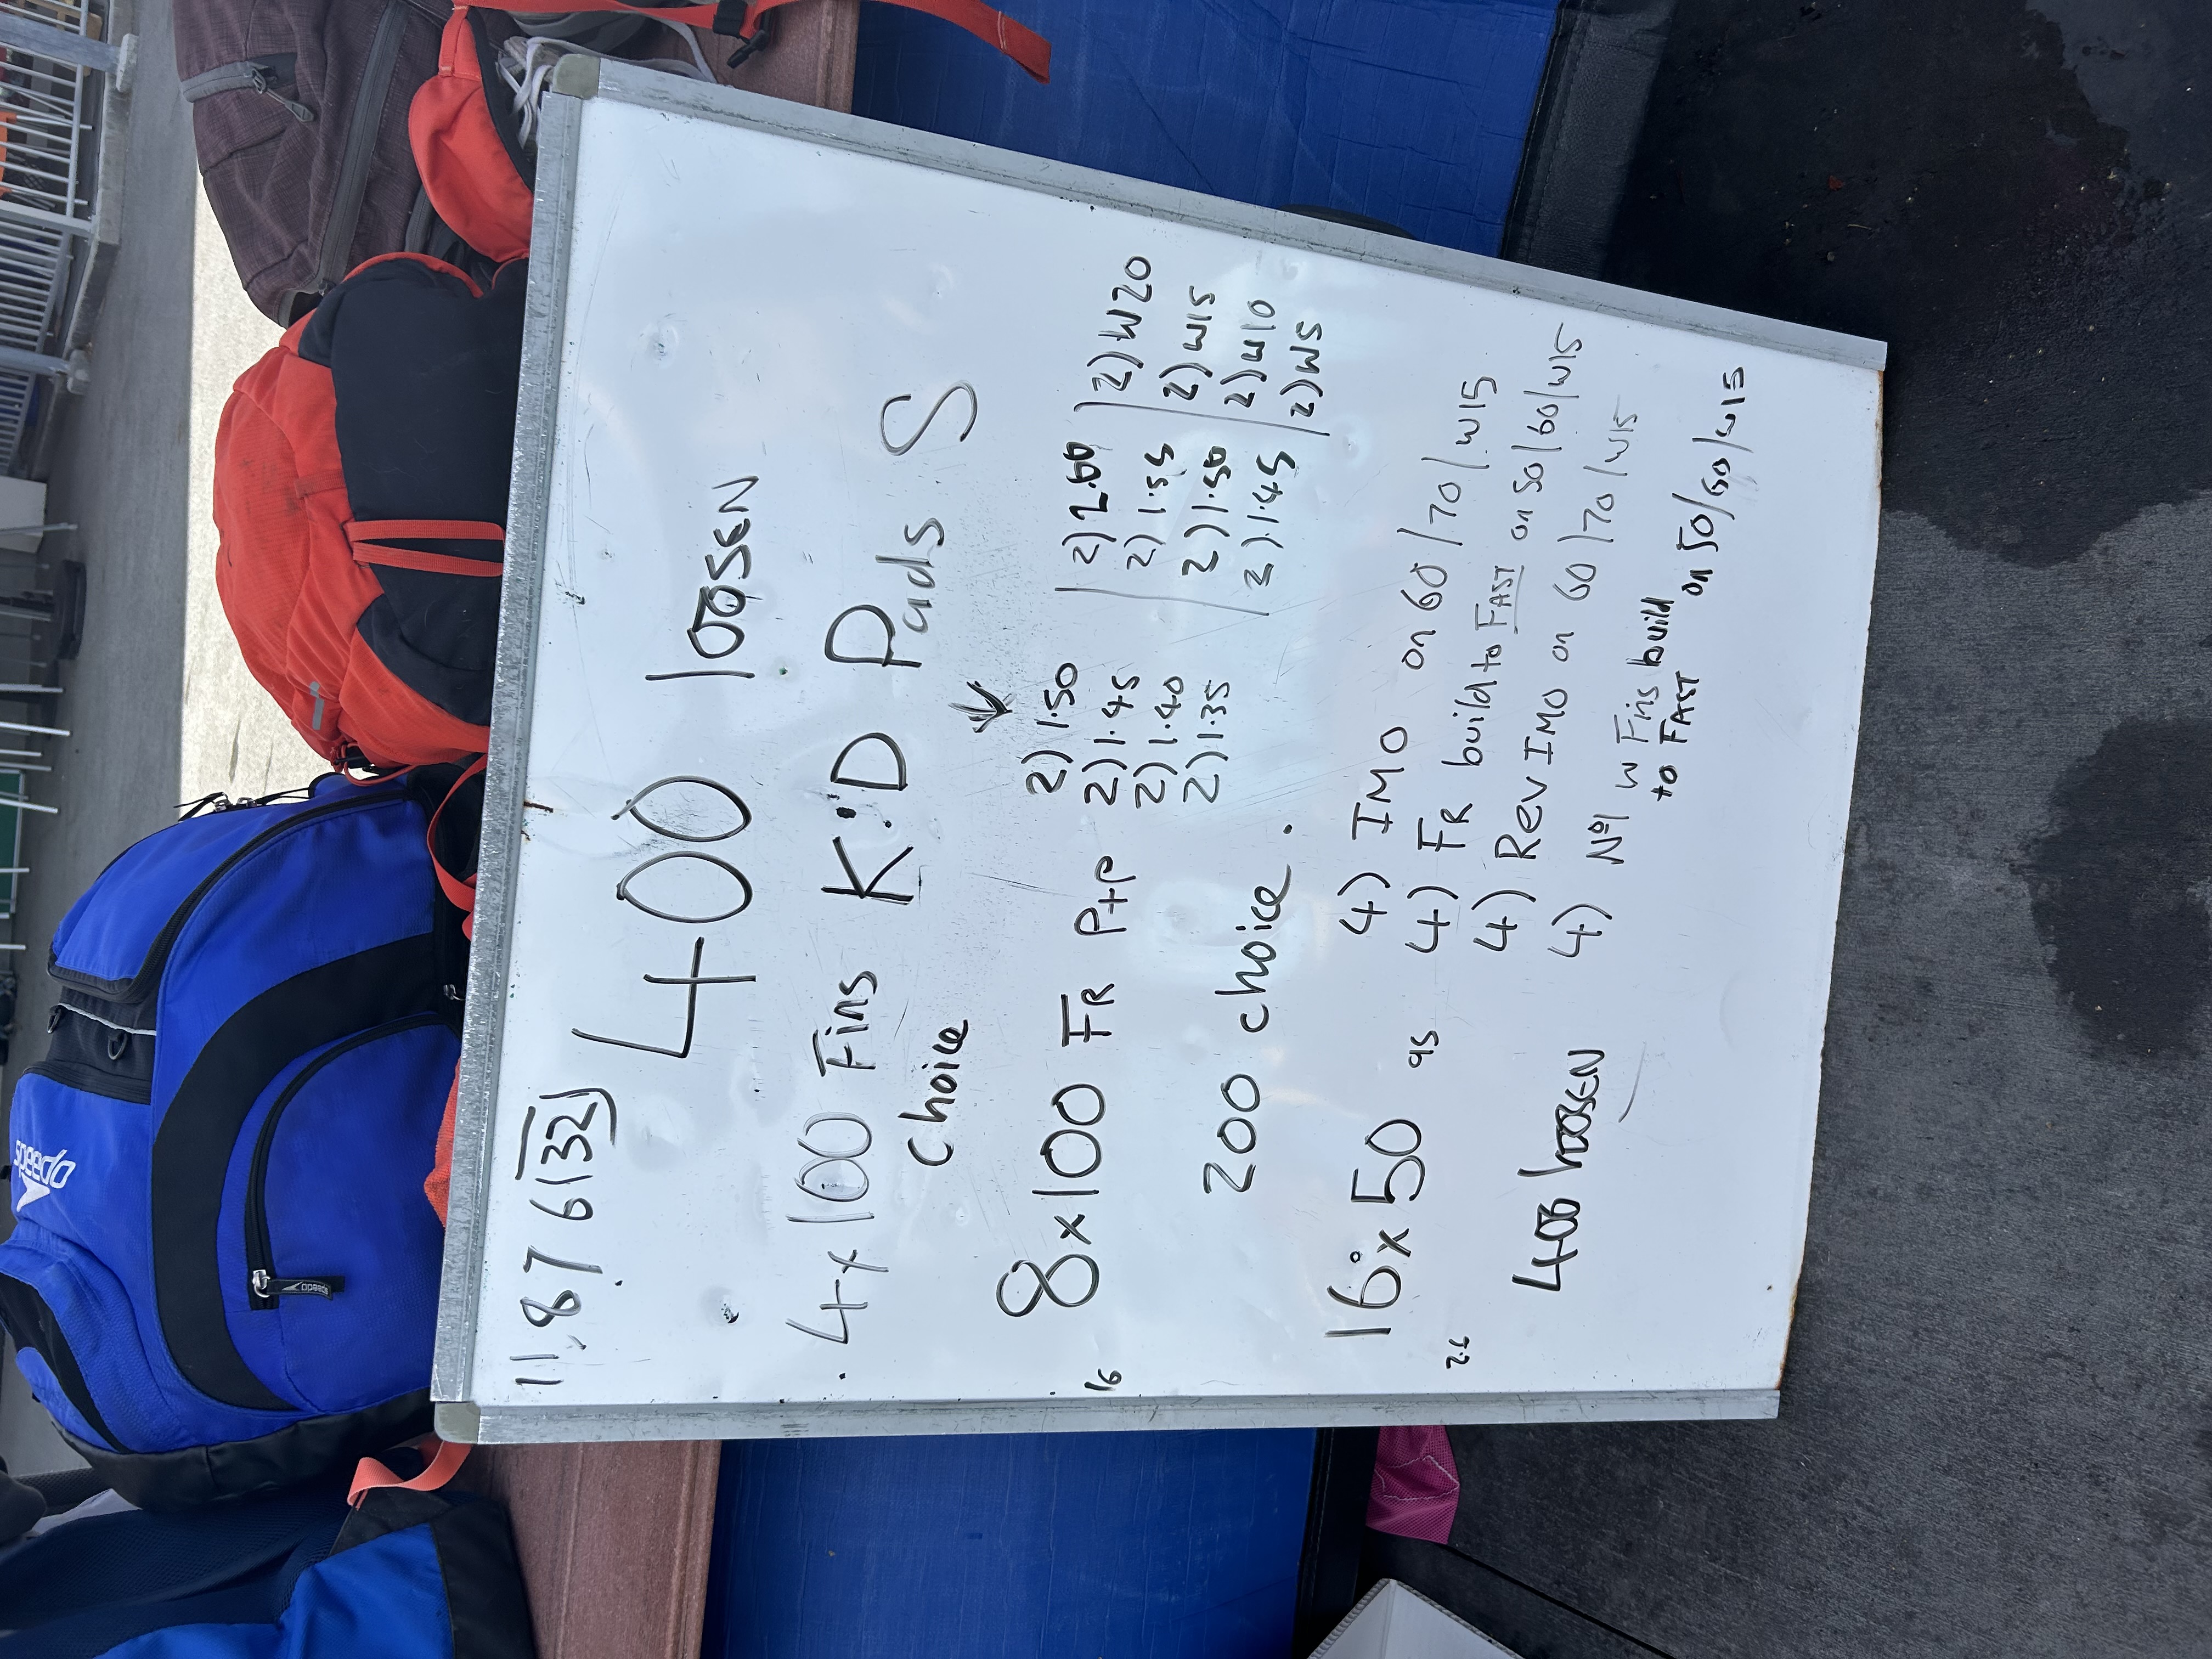 11,8 7 6 132
400 loosen
4x100 Fins K:D Pads S
choice
8x100 FR P+P 2) 1.50 | 2) 2.00 | 2) W20
2) 1.45 2) 1.55 2) W15
2) 1.40 2) 1.50 2) W10
2) 1.35 2) 1.45 2) W5
16
200 choice.
16x50 as 4) IMO on 60/70/W15
4) FR build to FAST on 50/60/W15
4) Rev IMO on 60/70/W15
4) Nº1 w Fins build
to FAST on 50/60/W15
2.6
400 loosen
speedo
speedo